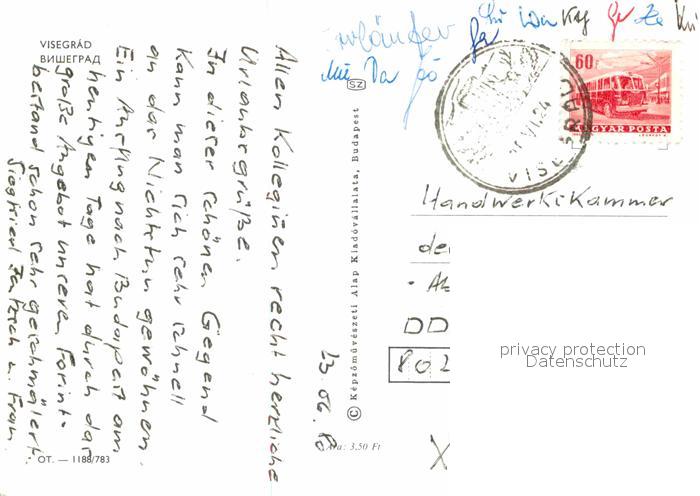 VISEGRÁD
ВИШЕГРАД
Allen Kolleginen recht herzliche
Urlaubsgrüße.
In dieser schönen Gegend
kann man sich sehr schnell
an das Nichtstun gewöhnen.
Ein Ausflug nach Budapest am
heutigen Tage hat durch das
große Angebot unseren Forint-
bestand schon sehr geschmälert.
Siegfried u. Frau.
OT. — 1188/783
23.06.
Ára: 3,50 Ft
© Képzőművészeti Alap Kiadóvállalata, Budapest
SZ
60f
MAGYAR POSTA
VISEGRÁD
VI. 24
Handwerkskammer
DD
802
X
privacy protection
Datenschutz